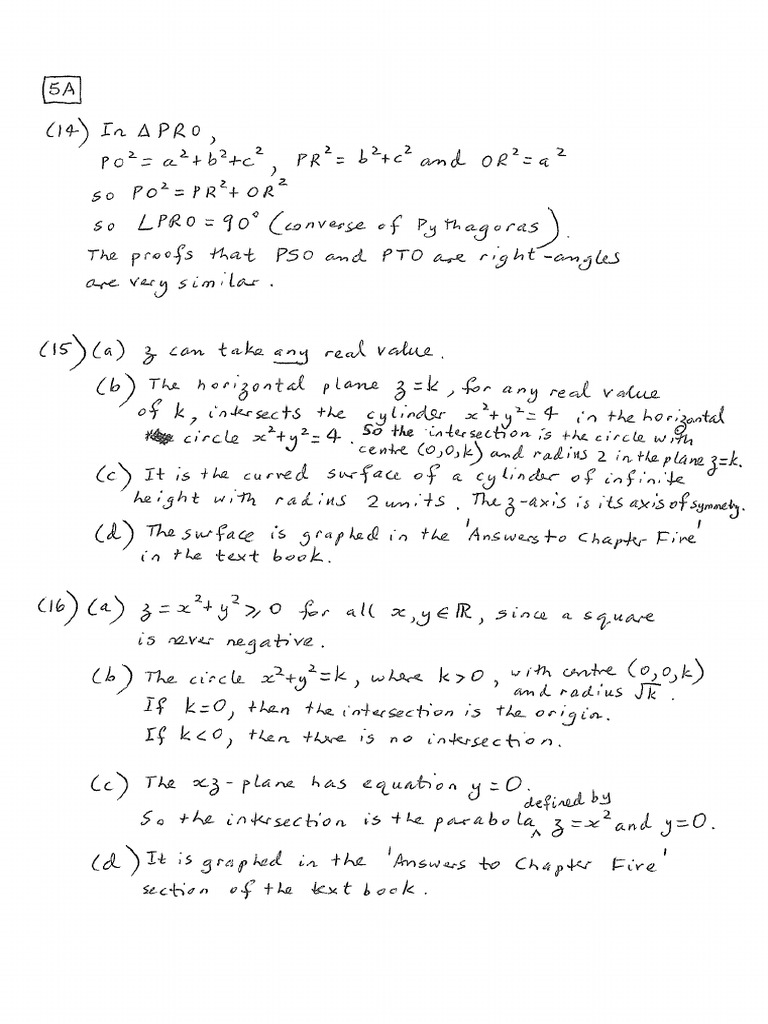 5A
(14) In △PRO,
PO² = a²+b²+c², PR² = b²+c² and OR² = a²
so PO² = PR² + OR²
so ∠PRO = 90° (converse of Pythagoras).
The proofs that PSO and PTO are right-angles
are very similar.
(15) (a) z can take any real value.
(b) The horizontal plane z=k, for any real value
of k, intersects the cylinder x²+y²=4 in the horizontal
circle x²+y²=4. So the intersection is the circle with
centre (0,0,k) and radius 2 in the plane z=k.
(c) It is the curved surface of a cylinder of infinite
height with radius 2 units. The z-axis is its axis of symmetry.
(d) The surface is graphed in the 'Answers to Chapter Five'
in the text book.
(16) (a) z = x²+y² ⩾ 0 for all x,y ∈ ℝ, since a square
is never negative.
(b) The circle x²+y²=k, where k>0, with centre (0,0,k)
and radius √k.
If k=0, then the intersection is the origin.
If k<0, then there is no intersection.
(c) The xz-plane has equation y=0.
So the intersection is the parabola defined by z=x² and y=0.
(d) It is graphed in the 'Answers to Chapter Five'
section of the text book.